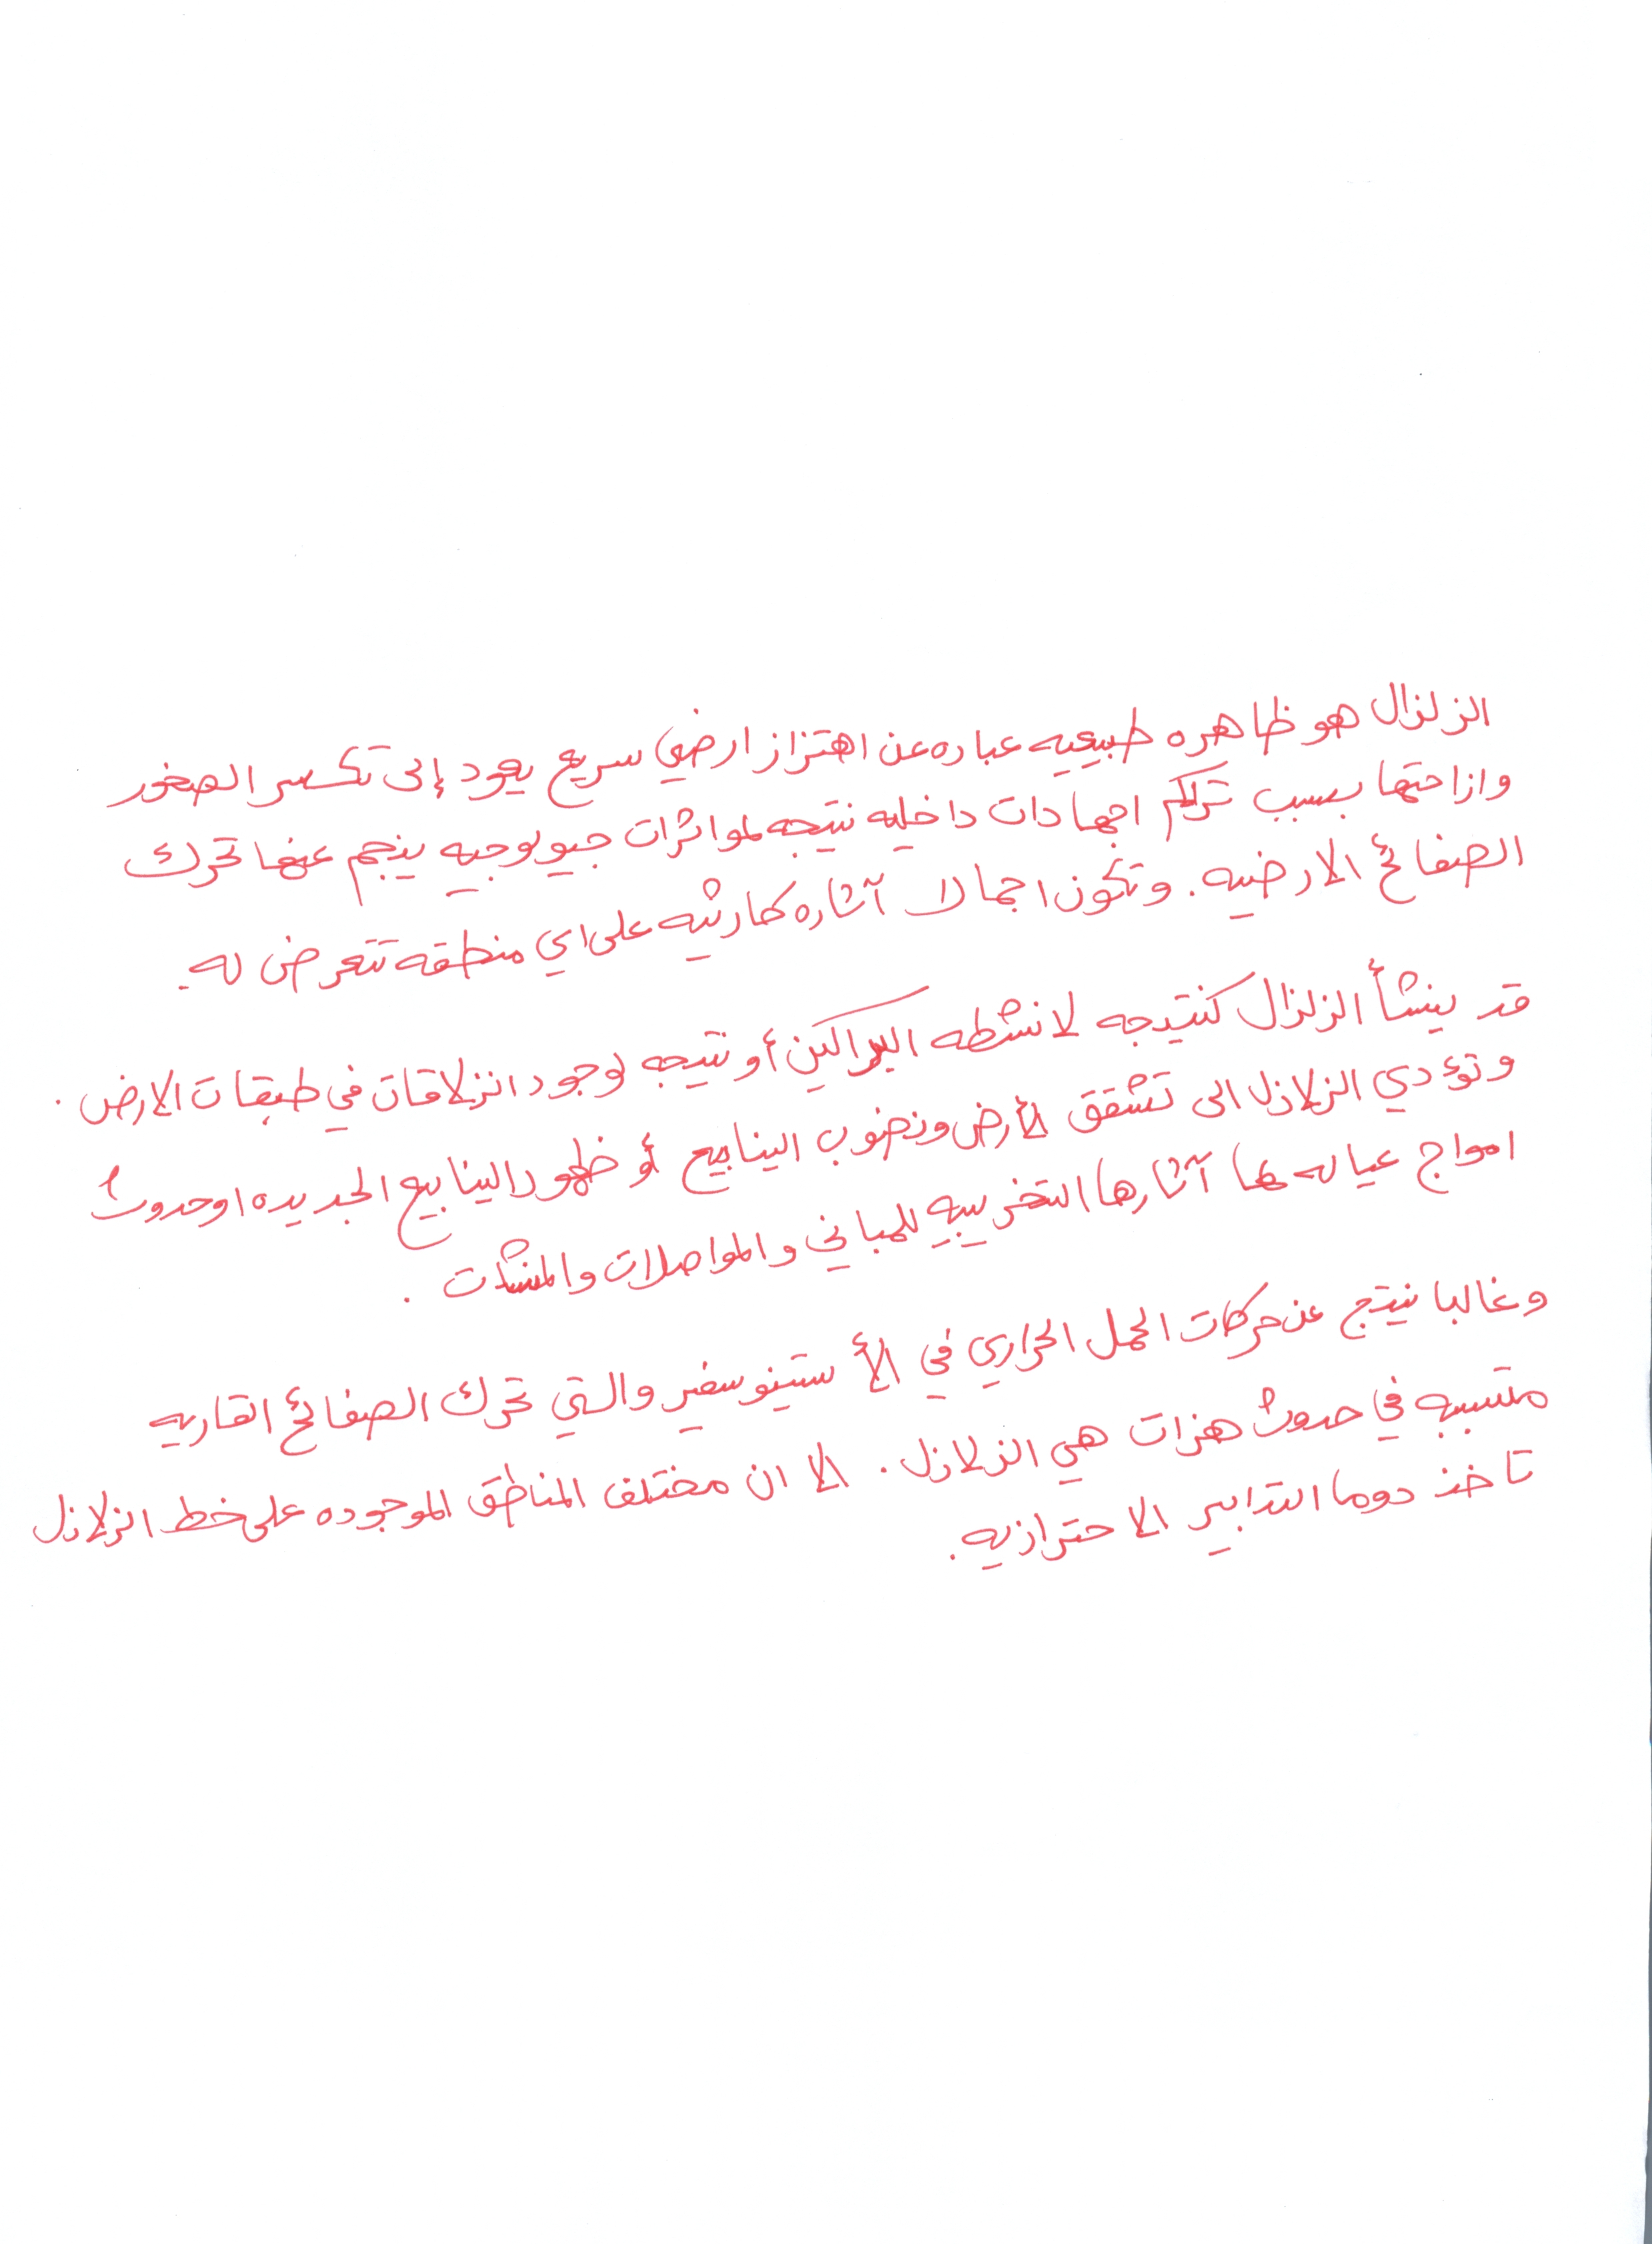 الزلزال هو ظاهره طبيعيه عباره عن اهتزاز ارضي سريع يعود إلى تكسر الصخور
وازاحتها بسبب تراكم اجهادات داخليه نتيجه لمواثرات جيولوجيه ينجم عنها تحرك
الصفائح الارضيه. وتكون اجمالا آثاره كارثيه على اي منطقه تتعرض له.
قد ينشأ الزلزال كنتيجه لانشطه البراكين أو نتيجه لوجود انزلاقات في طبقات الارض.
وتؤدي الزلازل الى تشقق الأرض ونضوب الينابيع أو ظهور الينابيع الجديده او حدوث
امواج عياله لها آثارها التخريبيه للمباني والمواصلات والمنشآت.
وغالبا ينتج عن حركات الحمل الحراري في الأستينوسفير والتي تحرك الصفائح القاريه
متسببه في حدوث هزات هي الزلازل. الا ان مختلف المناطق الموجوده على خط الزلازل
تاخذ دوما التدابير الاحترازيه.